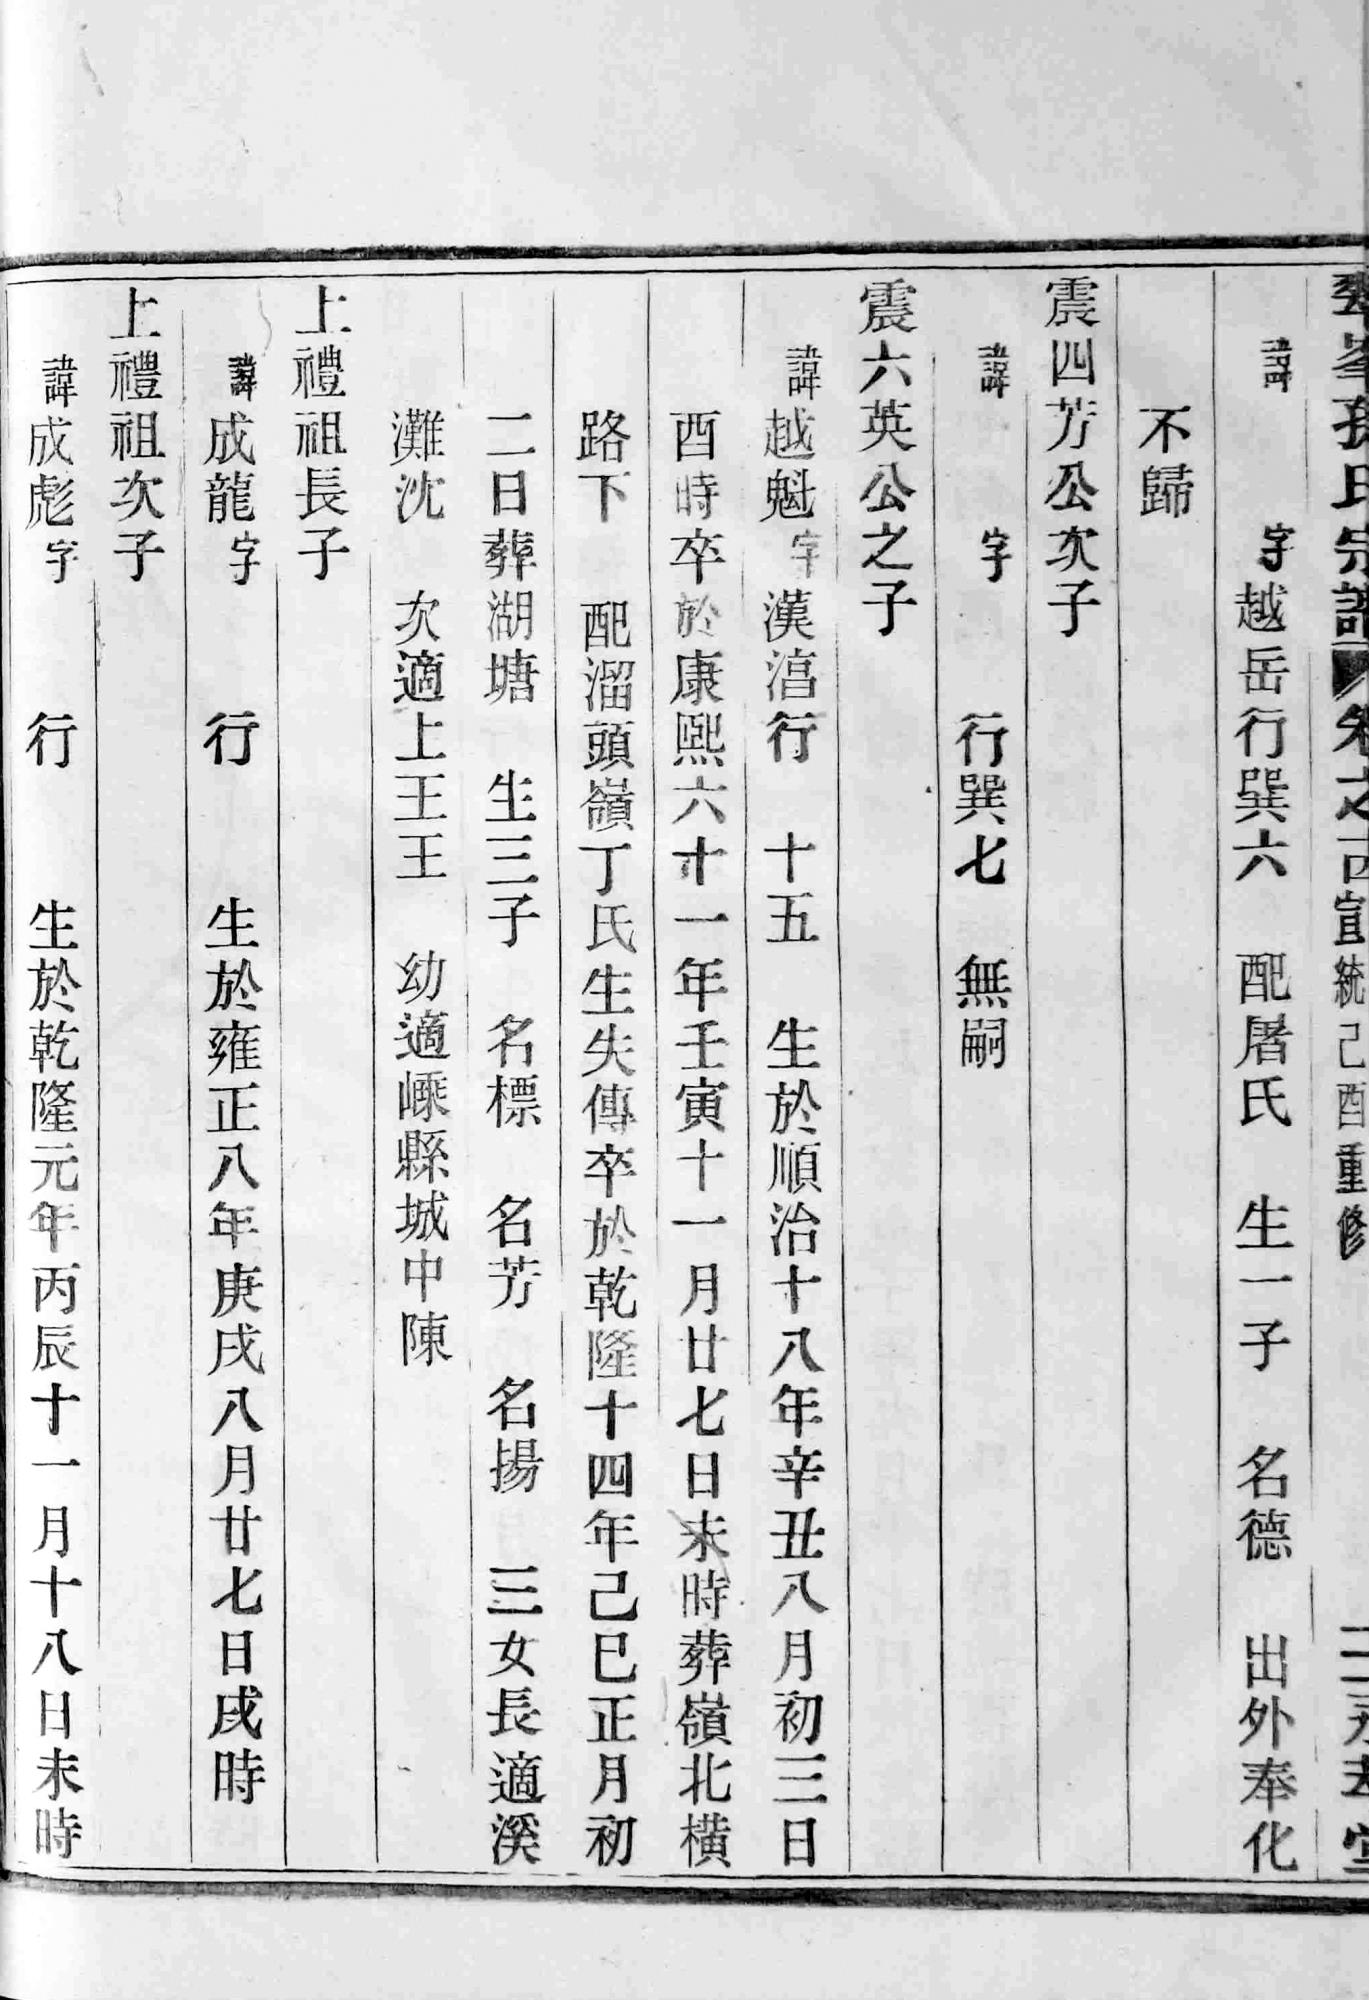 峯孫氏宗譜 卷之 宣統己酉重修
諱 字越岳行巽六 配屠氏 生一子 名德 出外奉化
不歸
震四芳公次子
諱 字 行巽七 無嗣
震六英公之子
諱越魁字漢淐行 十五 生於順治十八年辛丑八月初三日
酉時卒於康熙六十一年壬寅十一月廿七日未時葬嶺北橫
路下 配溜頭嶺丁氏生失傳卒於乾隆十四年己巳正月初
二日葬湖塘 生三子 名標 名芳 名揚 三女長適溪
灘沈 次適上王王 幼適嵊縣城中陳
上禮祖長子
諱成龍字 行 生於雍正八年庚戌八月廿七日戌時
上禮祖次子
諱成彪字 行 生於乾隆元年丙辰十一月十八日未時